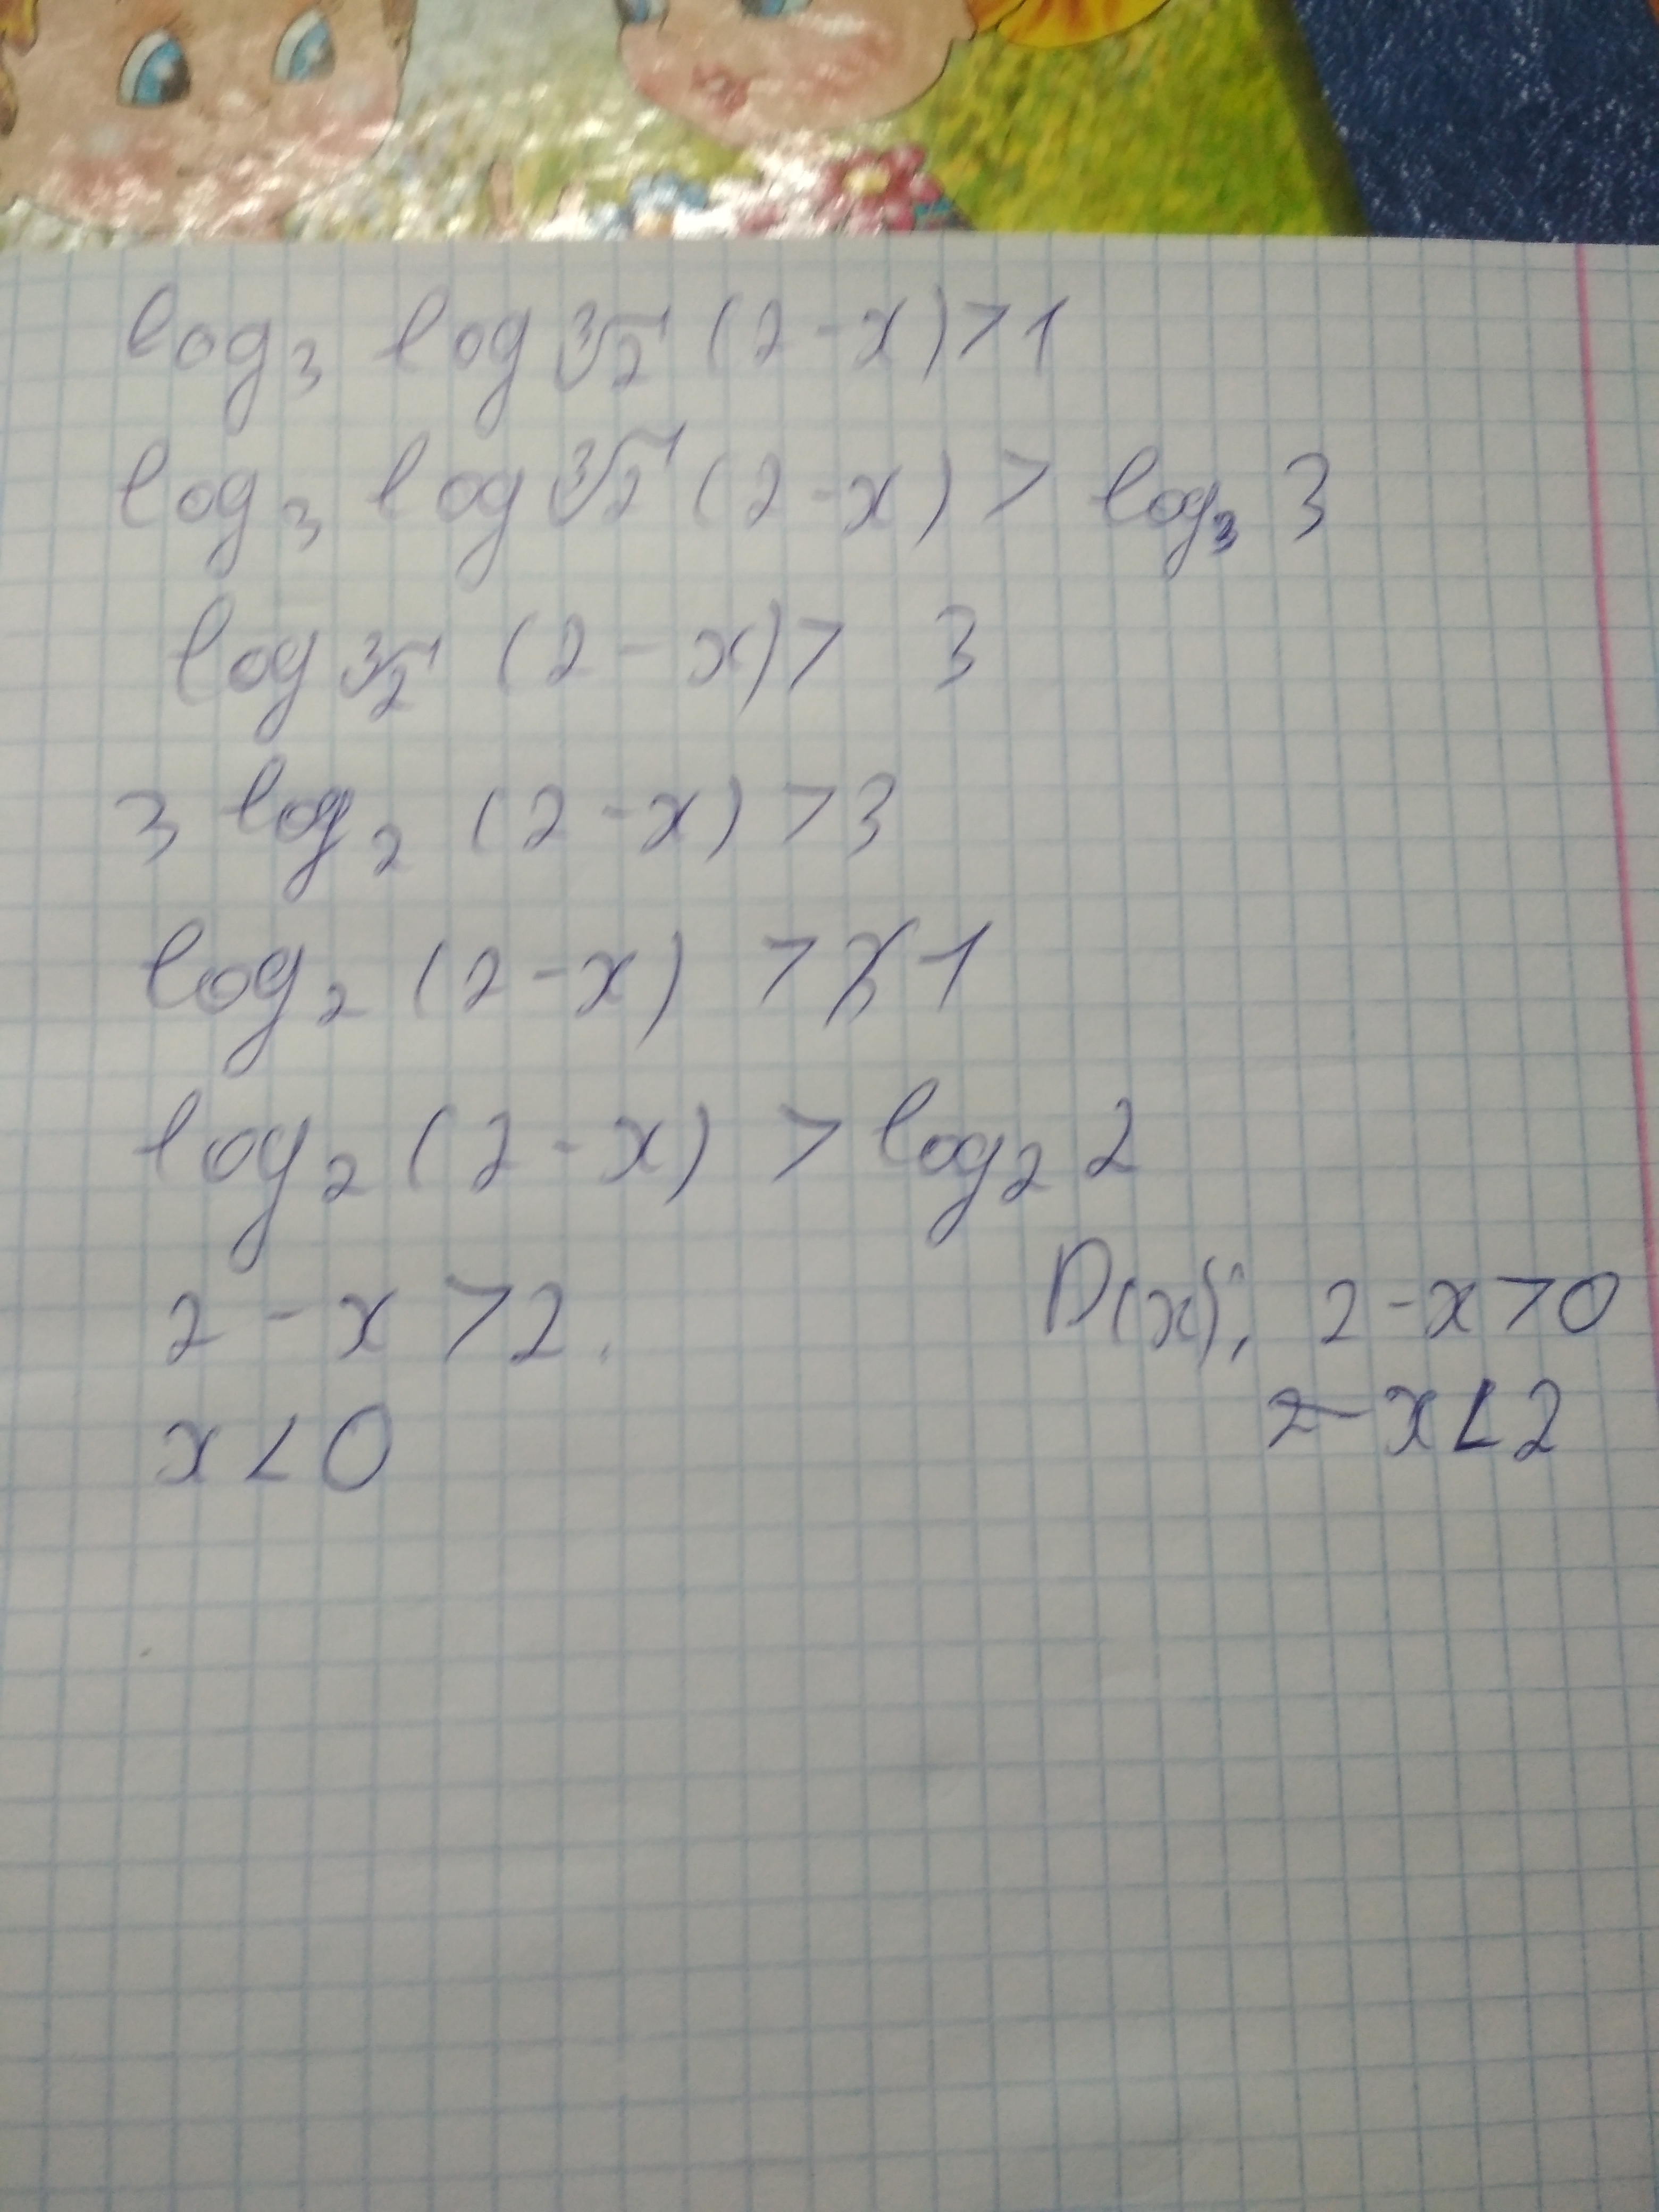 log₃ log ∛2 (2-x)>1
log₃ log ∛2 (2-x) > log₃ 3
log ∛2 (2-x)> 3
3 log₂ (2-x) >3
log₂ (2-x) > 1
log₂ (2-x) > log₂ 2
2-x >2. D(x): 2-x>0
x<0 x<2